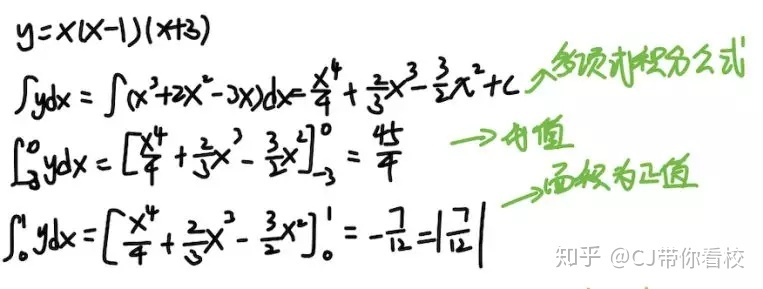 y=x(x-1)(x+3)
∫ydx = ∫(x³+2x²-3x)dx = x⁴/4 + 2/3x³ - 3/2x² + c → 多项式积分公式
∫₋₃⁰ ydx = [x⁴/4 + 2/3x³ - 3/2x²]₋₃⁰ = 45/4 → 求值
∫₀¹ ydx = [x⁴/4 + 2/3x³ - 3/2x²]₀¹ = -7/12 = |7/12| → 面积为正值
知乎 @CJ带你看校